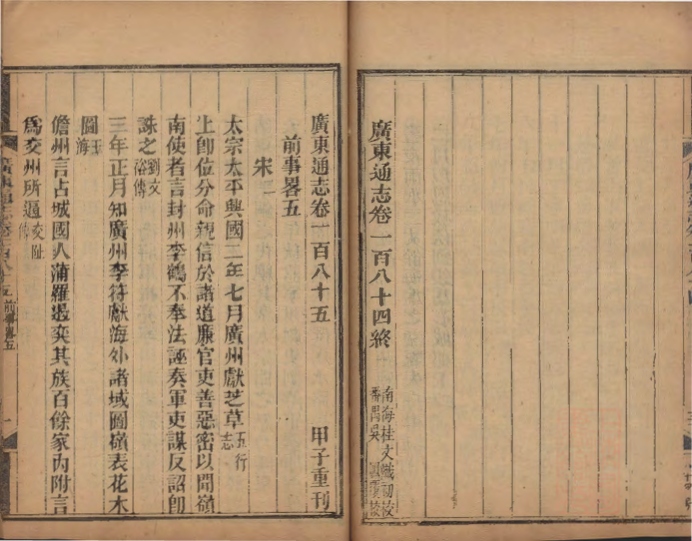 廣東通志卷一百八十四終
南海桂文熾初校
廣東通志卷一百八十五
甲子重刊
前事畧五
宋一
太宗太平興國二年七月廣州獻芝草五行志
上卽位分命親信於諸道廉官吏善惡密以聞嶺
南使者言封州李鶴不奉法誣奏軍吏謀反詔卽
誅之劉文裕傳
三年正月知廣州李符獻海外諸域圖嶺表花木
圖玉海
儋州言占城國人蒲羅遏奕其族百餘家內附言
爲交州所逼交阯傳
前事畧五